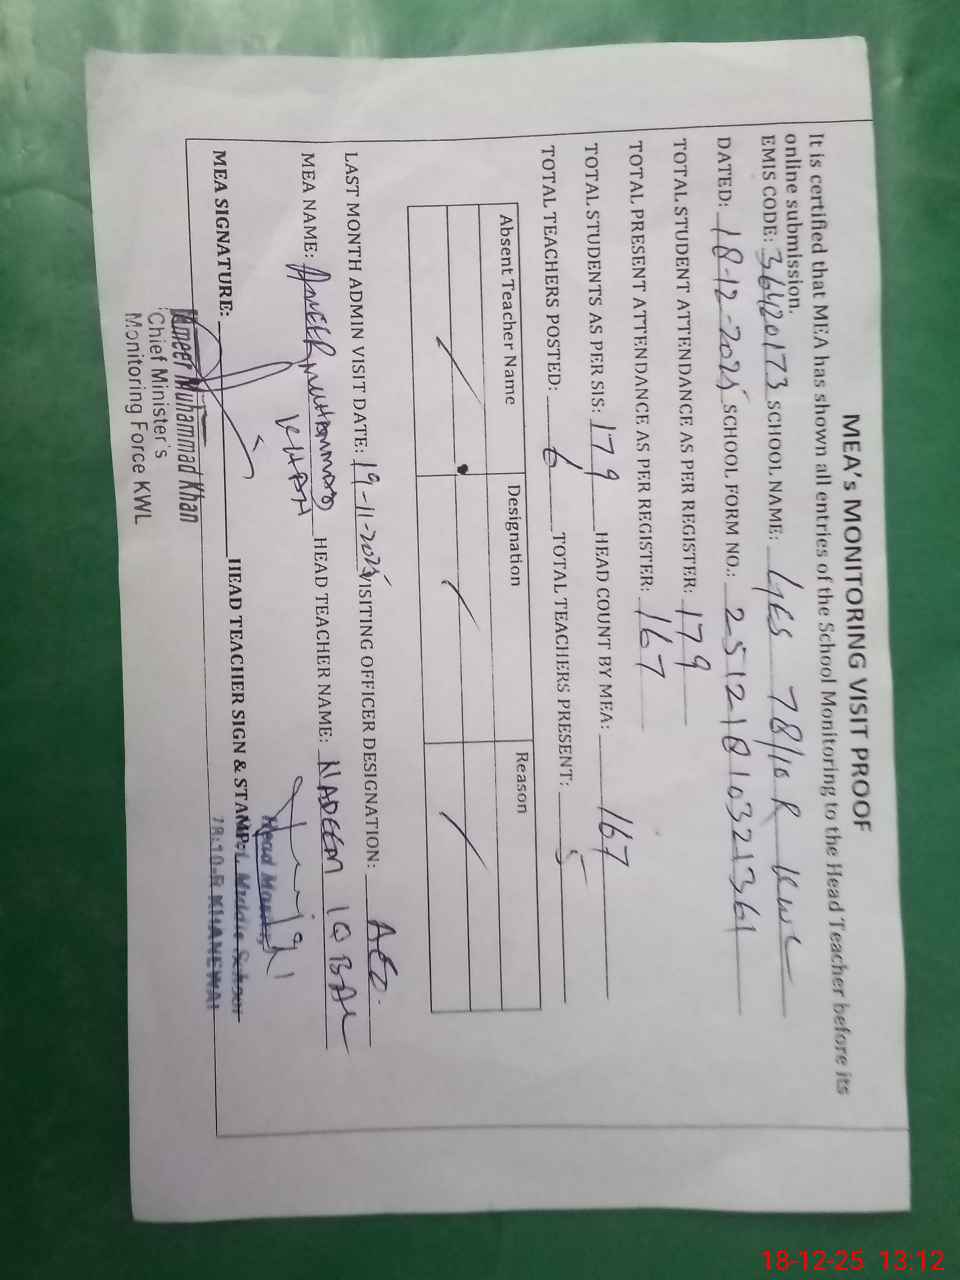 MEA's MONITORING VISIT PROOF
It is certified that MEA has shown all entries of the School Monitoring to the Head Teacher before its
online submission.
EMIS CODE: 36420173 SCHOOL NAME: GES 78/10 R KWL
DATED: 18-12-2025 SCHOOL FORM NO.: 25121810321361
TOTAL STUDENT ATTENDANCE AS PER REGISTER: 179
TOTAL PRESENT ATTENDANCE AS PER REGISTER: 167
TOTAL STUDENTS AS PER SIS: 179 HEAD COUNT BY MEA: 167
TOTAL TEACHERS POSTED: 6 TOTAL TEACHERS PRESENT: 5
Absent Teacher Name Designation Reason
LAST MONTH ADMIN VISIT DATE: 19-11-2025 VISITING OFFICER DESIGNATION: AEO.
MEA NAME: AMEER MUHAMMAD KHAN HEAD TEACHER NAME: NADEEM IQBAL
MEA SIGNATURE: HEAD TEACHER SIGN & STAMP:
Head Master
Middle School
78/10-R KHANEWAL
Ameer Muhammad Khan
Chief Minister's
Monitoring Force KWL
18-12-25 13:12